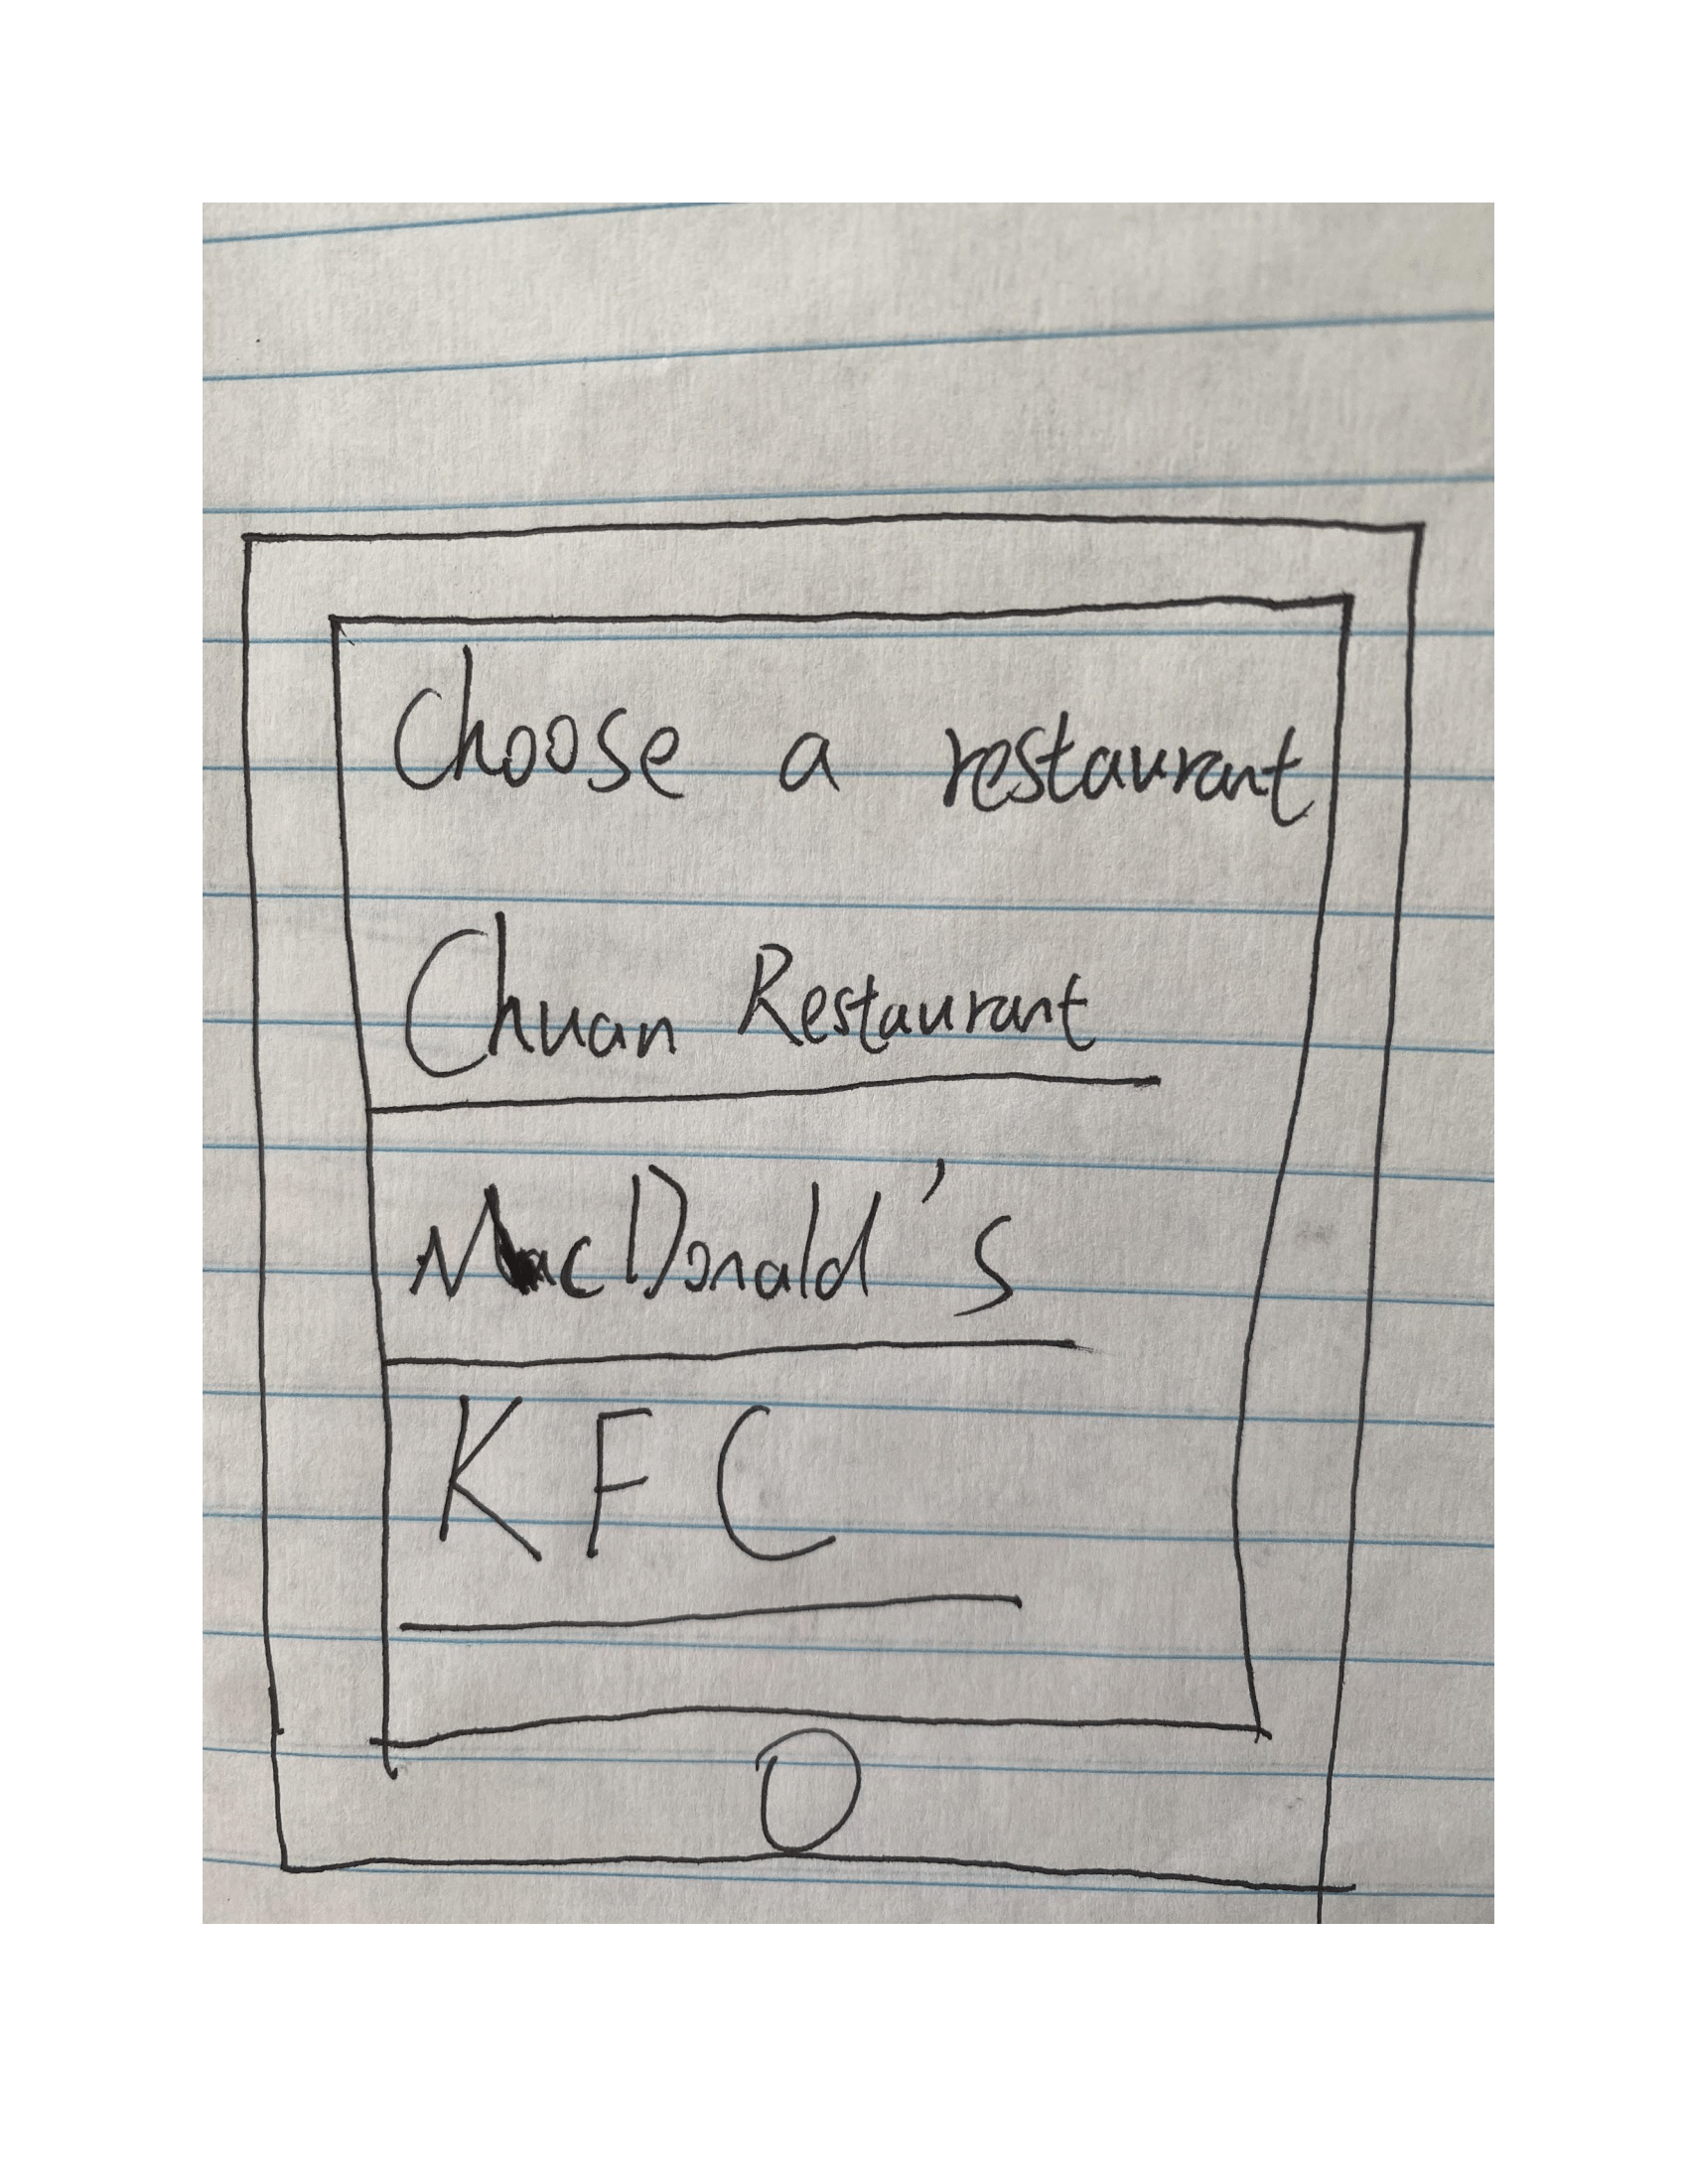 Choose a restaurant
Chuan Restaurant
MacDonald's
KFC